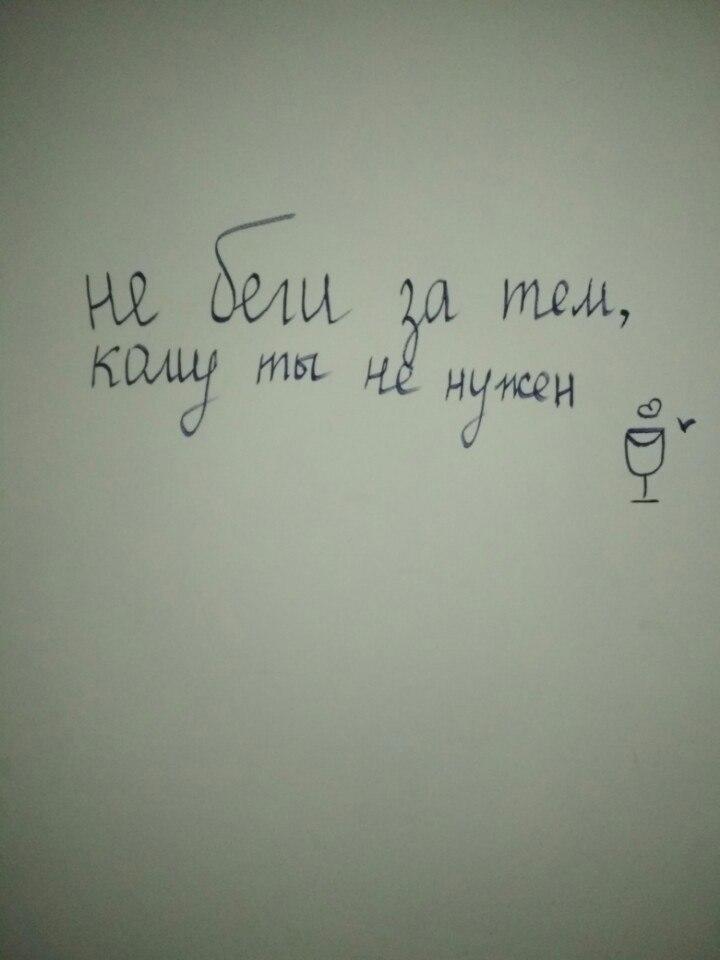 не беги за тем,
кому ты не нужен